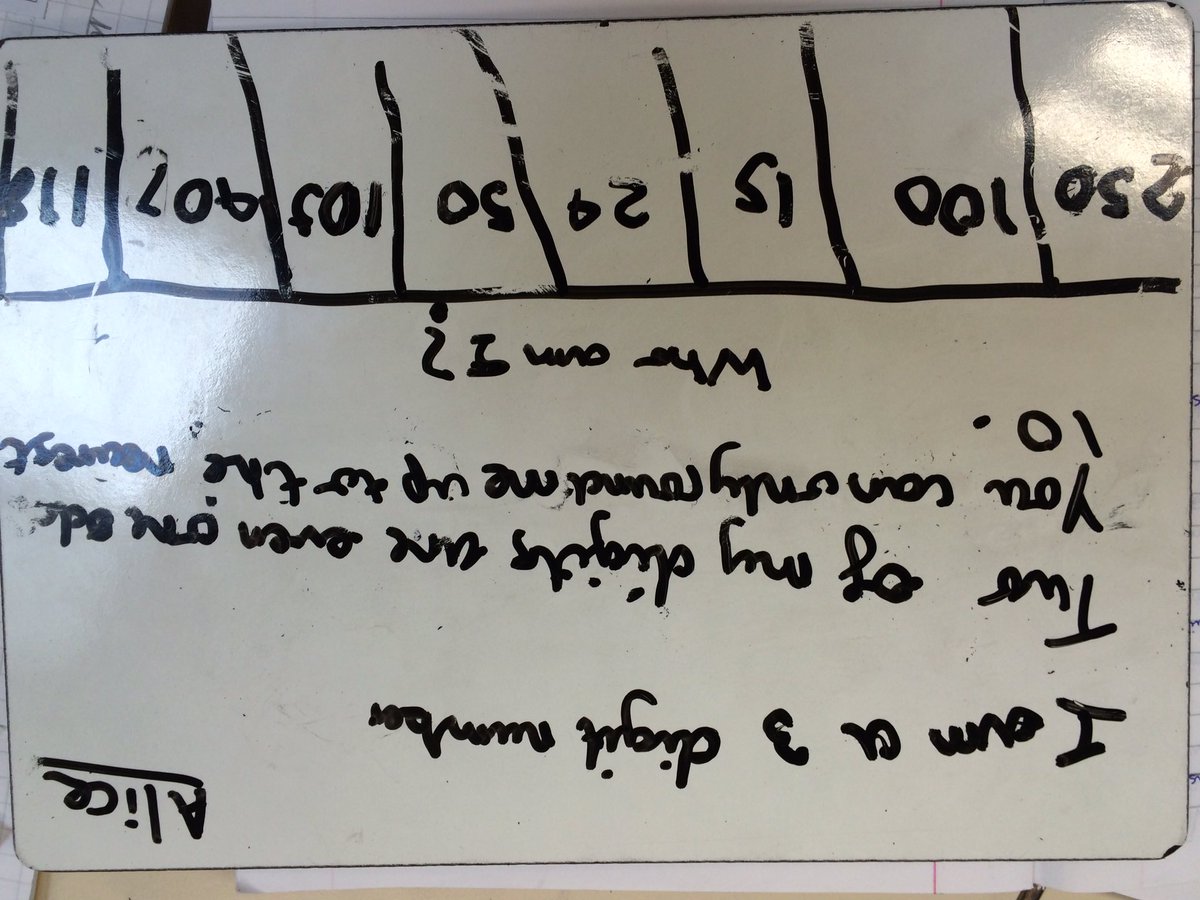 Alice
I am a 3 digit number
Two of my digits are even one odd
You can only round me up to the nearest
10.
Who am I?
250 100 15 24 50 105 407 118